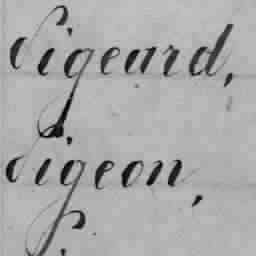 Sigeard,
Sigeon,